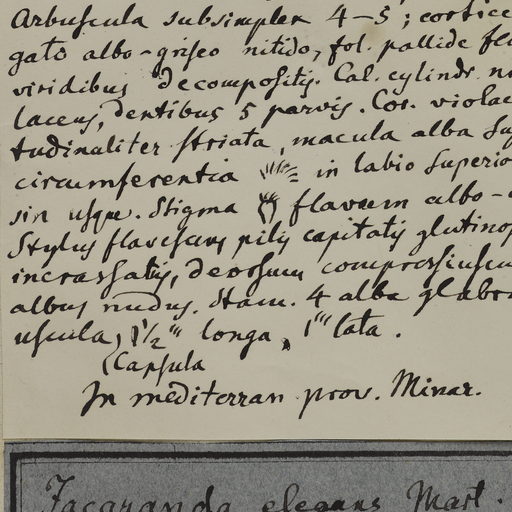 Arbuscula subsimplex 4–5; cortice
gato albo-griseo nitido, fol. pallide
viridibus decompositis. Cal. cylindr.
laceus, dentibus 5 parvis. Cor. violac
tudinaliter striata, macula alba Su
circumferentia in labio superio
sin usque. Stigma flavum albo-
Stylus flavescens pilis capitatis glutinos
incrassatis, deorsum compressiuscu
albus nudus. Stam. 4 alba glabr
uscula, 1½''' longa, 1''' lata.
(Capsula
In mediterran prov. Minar.
Jacaranda elegans Mart.